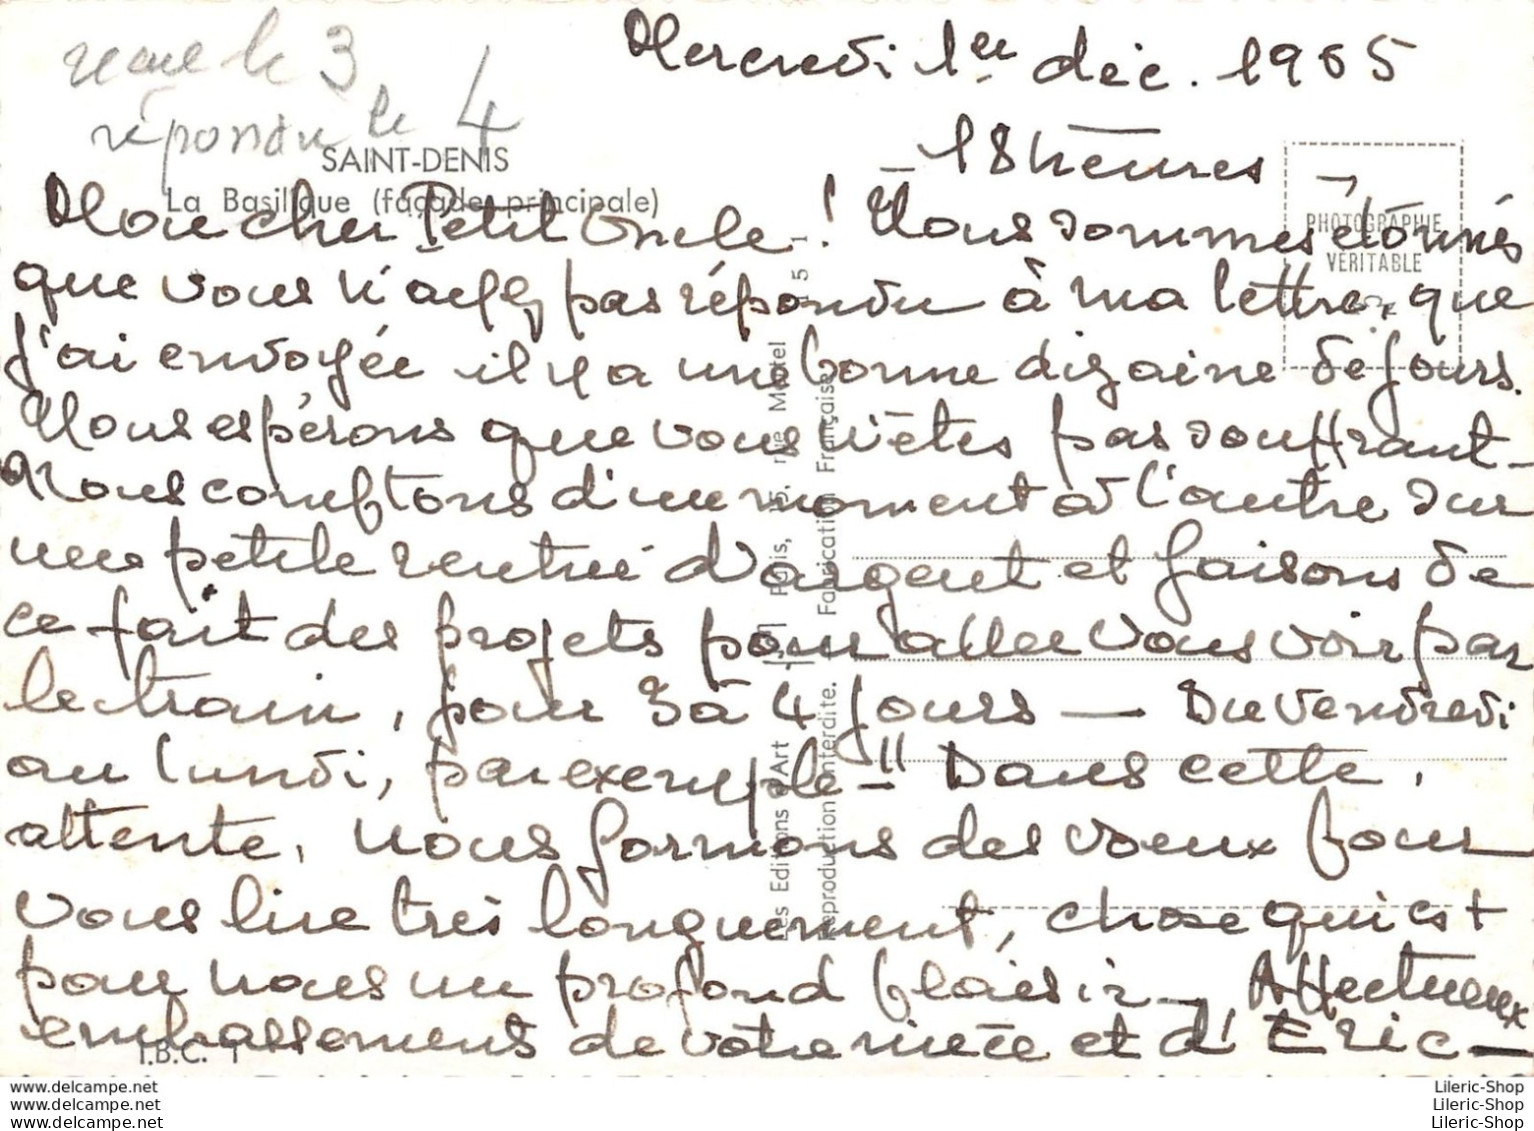 reçue le 3
répondu le 4
Mercredi 1er déc. 1965
– 18 heures –
SAINT-DENIS
La Basilique (façade principale)
PHOTOGRAPHIE
VÉRITABLE
Mon cher Petit Oncle ! Nous sommes étonnés
que vous n'ayez pas répondu à ma lettre, que
j'ai envoyée il y a une bonne dizaine de jours.
Nous espérons que vous n'êtes pas souffrant –
Nous comptons d'un moment à l'autre sur
une petite rentrée d'argent et faisons de
ce fait des projets pour aller vous voir par
le train, pour 3 à 4 jours — Du vendredi
au lundi, par exemple – !! Dans cette
attente, nous formons des voeux pour
vous lire très longuement, chose qui est
pour nous un profond plaisir – Affectueux
embrassements de votre nièce et d'Eric –
Les Editions d'Art Paris, 15, rue Martel
Reproduction interdite. Fabrication Française
I.B.C. 1
delcampe.net
delcampe.net
delcampe.net
Lileric-Shop
Lileric-Shop
Lileric-Shop